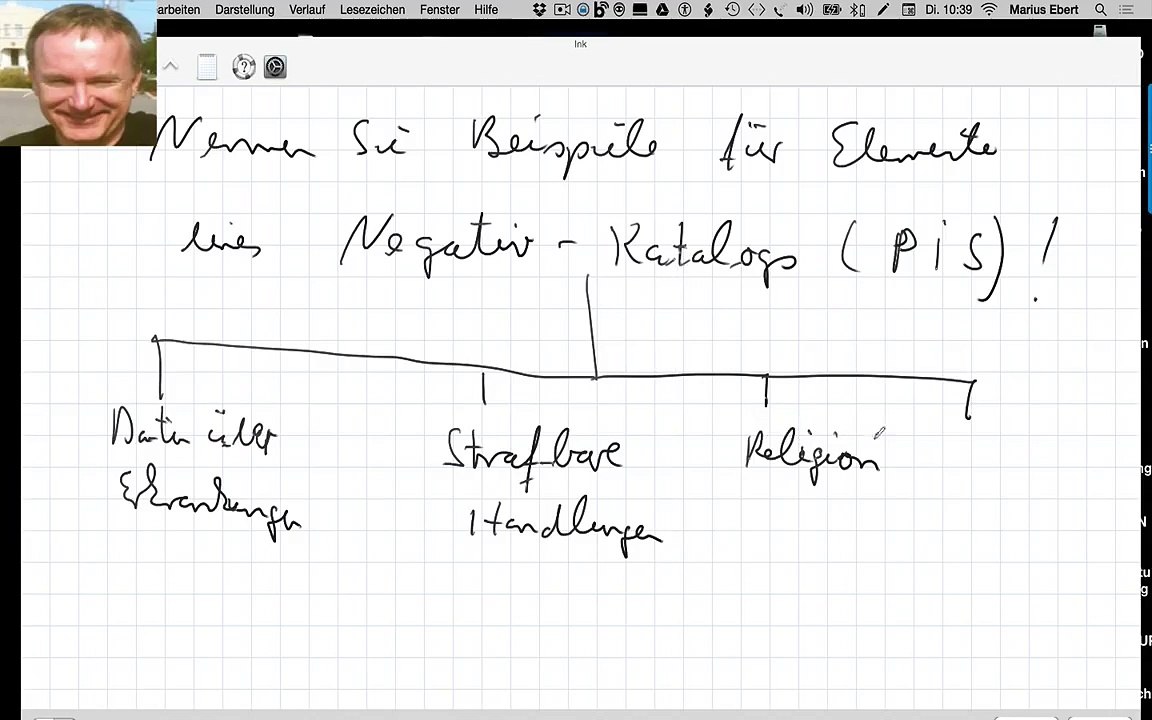 arbeiten Darstellung Verlauf Lesezeichen Fenster Hilfe Di. 10:39 Marius Ebert
Ink
Nennen Sie Beispiele für Elemente
eines Negativ - Katalogs (PiS) !
Daten über Strafbare Religion
Erkrankungen Handlungen